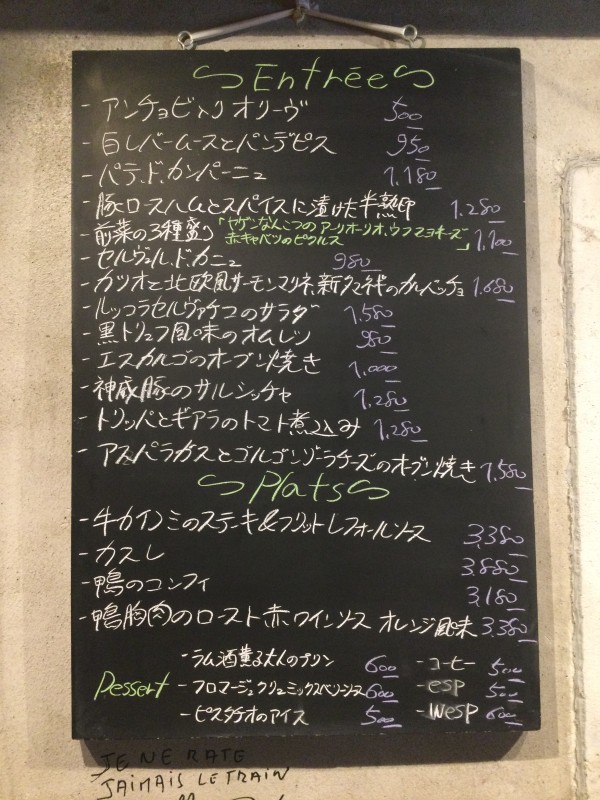 Entrée
- アンチョビ入り オリーヴ 500
- 白レバームースとパンデピス 950
- パテ.ド.カンパーニュ 1,180
- 豚ロースハムとスパイスに漬けた半熟卵 1,280
- 前菜の3種盛り「ヤゲンなんこつのアーリオ・オーリオ、ウフマヨネーズ 1,100
赤キャベツのピクルス」
- セルヴェル.ド.カニュ 980
- カツオと北欧風サーモンマリネ、新タマネギのカルパッチョ 1,680
- ルッコラセルヴァチコのサラダ 1,580
- 黒トリュフ風味のオムレツ 980
- エスカルゴのオーブン焼き 1,000
- 神威豚のサルシッチャ 1,280
- トリッパとギアラのトマト煮込み 1,280
- アスパラガスとゴルゴンゾーラチーズのオーブン焼き 1,580
Plats
- 牛カイノミのステーキ&フリット レフォールソース 3,380
- カスレ 3,880
- 鴨のコンフィ 3,180
- 鴨胸肉のロースト 赤ワインソース オレンジ風味 3,380
Dessert
- ラム酒薫る大人のプリン 600
- フロマージュクリュ ミックスベリーソース 600
- ピスタチオのアイス 500
- コーヒー 500
- esp 500
- Wesp 600
JE NE RATE
JAIMAIS LE TRAIN